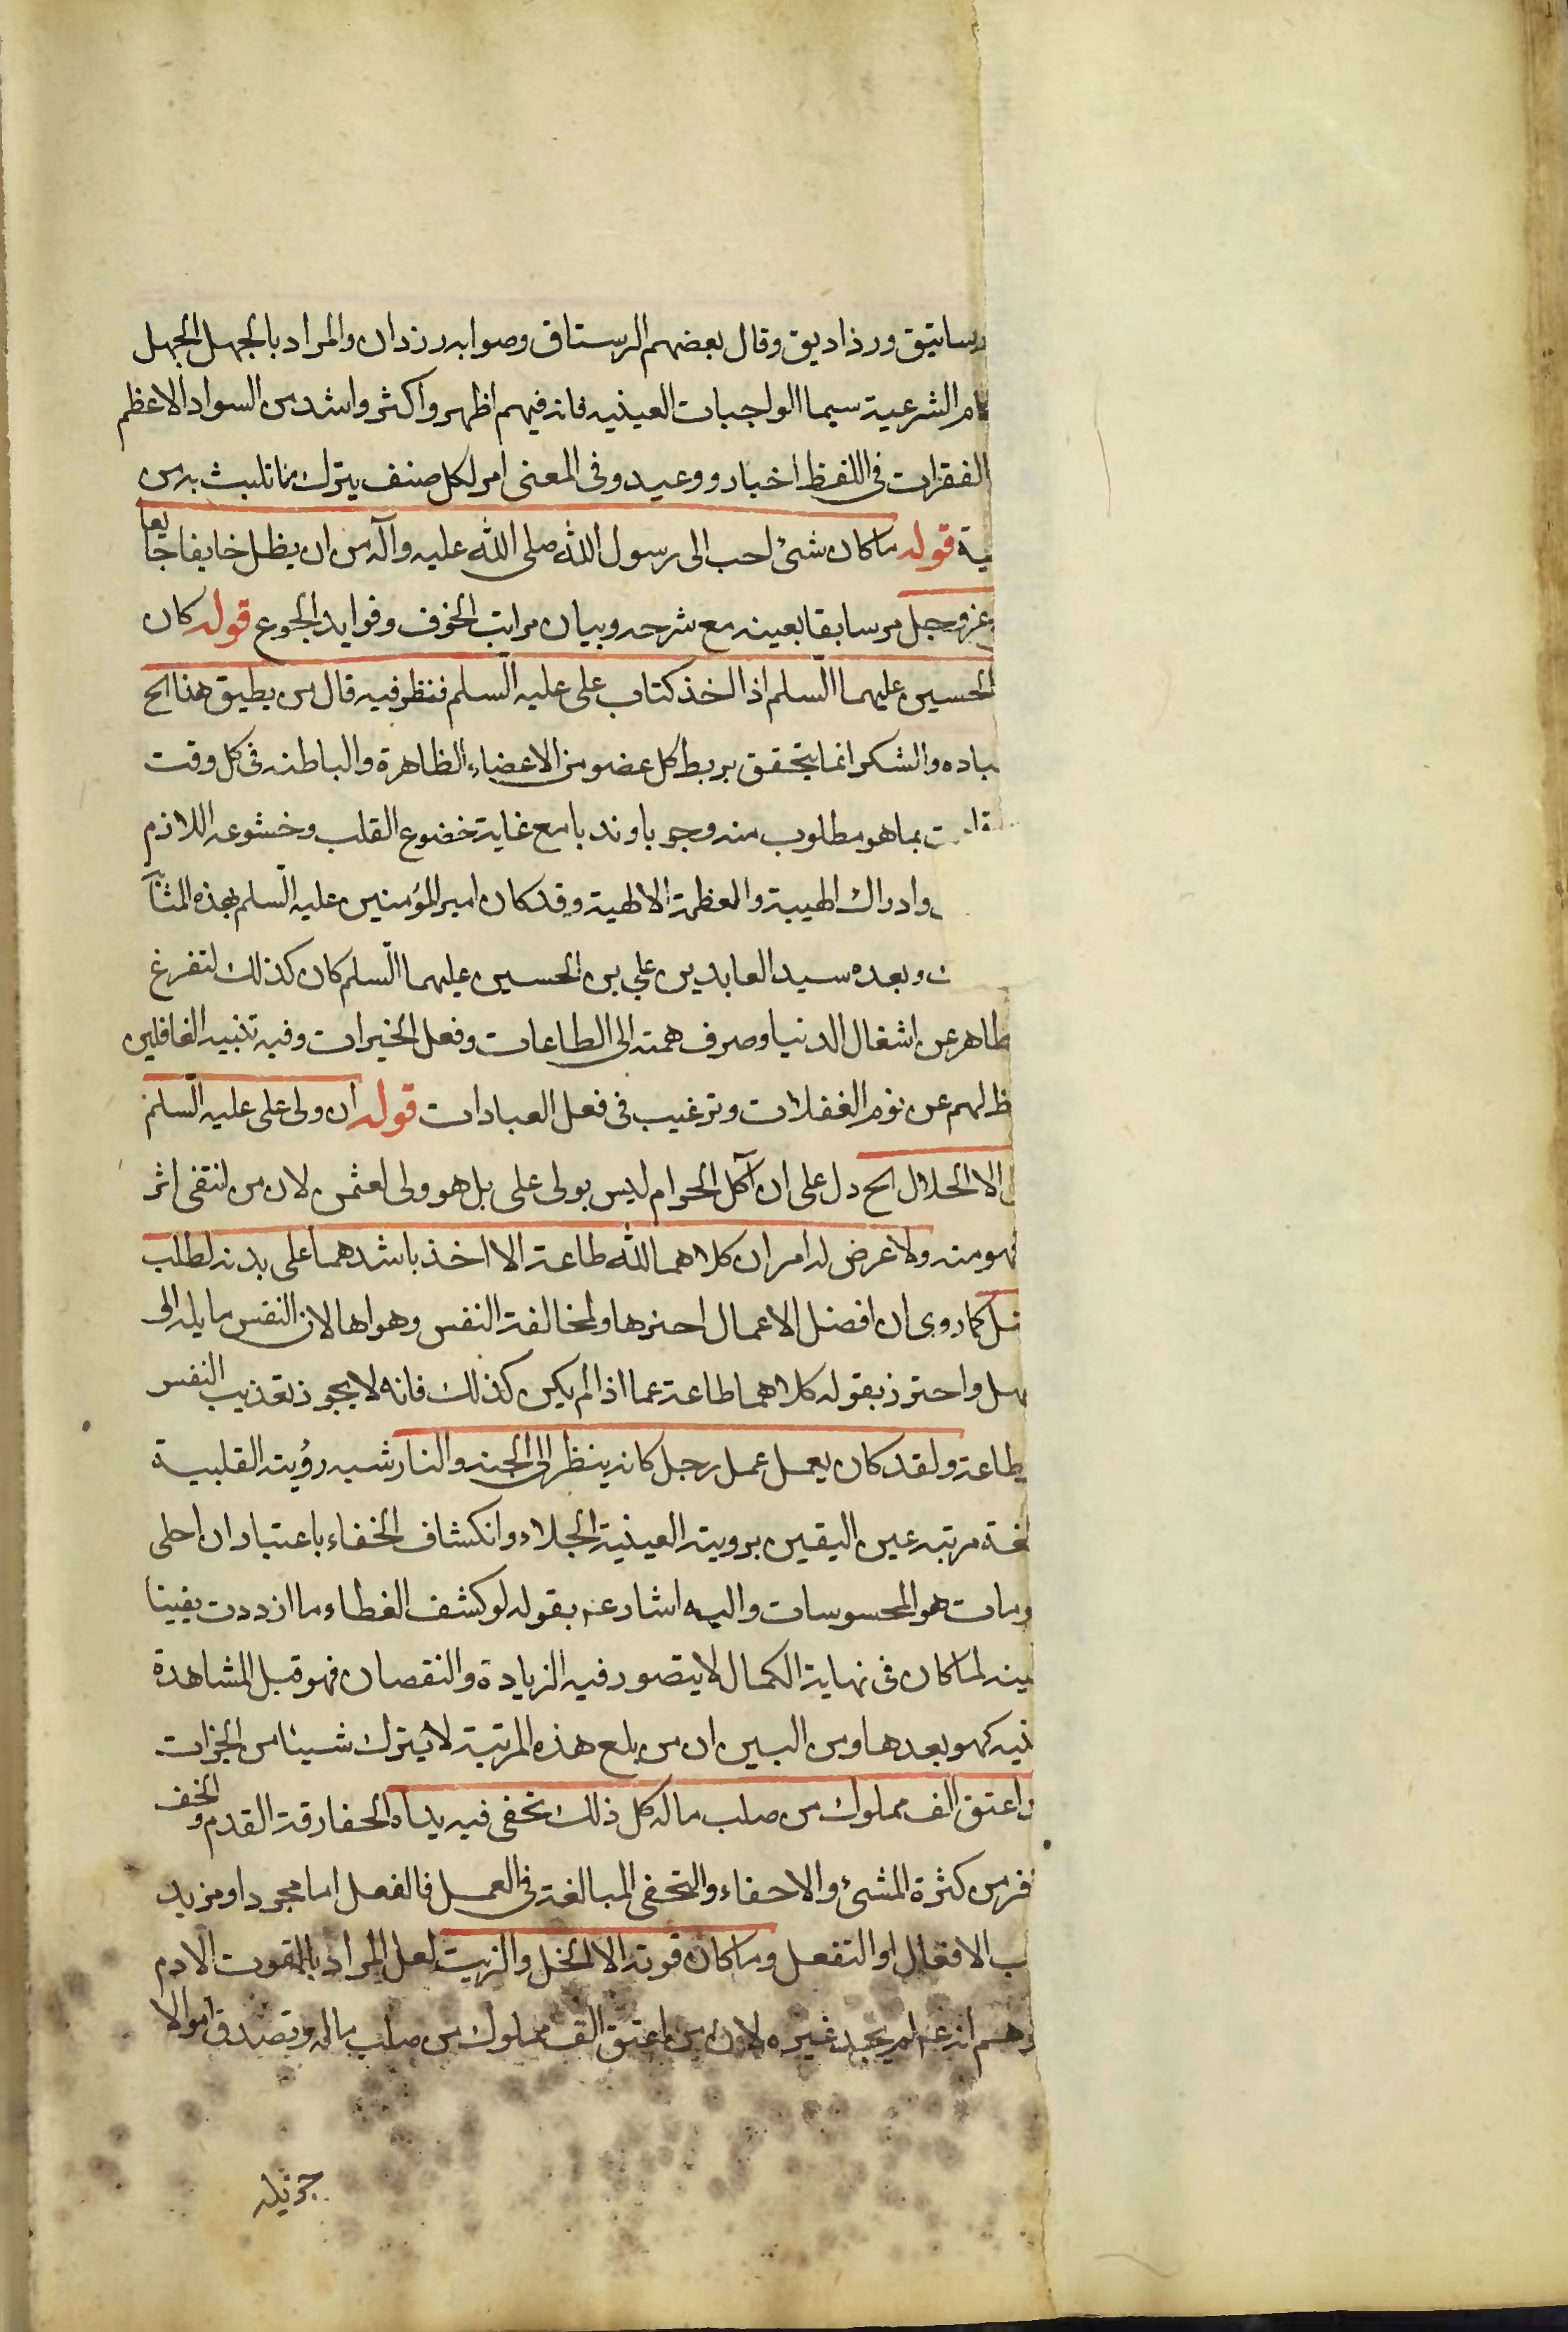 رساتيق ورذاديق وقال بعضهم الرستاق وصوابه رزدان والمراد بالجهل الجهل
الشرعية سيما الواجبات العينيه فانه فيهم اظهر واكثر واشد من السواد الاعظم
الفقرات في اللفظ اخبار ووعيد وفي المعنى امر لكل صنف بترك ما تلبث به من
قوله ما كان شئ احب الى رسول الله صلى الله عليه وآله من ان يظل خايفا جايعا
عز وجل مر سابقا بعينه مع شرحه وبيان مراتب الخوف وفوايد الجوع قوله كان
الحسين عليهما السلم اذا اخذ كتاب على عليه السلم فنظر فيه قال من يطيق هذا الخ
والشكر انما يتحقق بربط كل عضو من الاعضاء الظاهرة والباطنه في كل وقت
بما هو مطلوب منه وجوبا وندبا مع غاية خضوع القلب وخشوعه اللازم
وادراك الهيبة والعظمة الالهية وقد كان امير المؤمنين عليه السلم بهذه المثابة
وبعده سيد العابدين علي بن الحسين عليهما السلم كان كذلك لتفرغ
طاهر عن اشغال الدنيا وصرف همته الى الطاعات وفعل الخيرات وفيه تنبيه الغافلين
لهم عن نوم الغفلات وترغيب في فعل العبادات قوله ان ولى على عليه السلم
الا الحلال الخ دل على ان آكل الحرام ليس بولى على بل هو ولى لعثمن لان من انتقى اثر
فهو منه ولا عرض له امران كلاهما لله طاعة الا اخذ باشدهما على بدنه لطلب
كما روى ان افضل الاعمال احمزها ولمخالفة النفس وهواها لان النفس مايله الى
واحترز بقوله كلاهما طاعة عما اذا لم يكن كذلك فانه لا يجوز تعذيب النفس
طاعة ولقد كان يعمل عمل رجل كانه ينظر الى الجنه والنار شبه رؤيته القلبية
مرتبه عين اليقين برويته العينية الجلاء وانكشاف الخفاء باعتبار ان احلى
هو المحسوسات واليه اشار عنه بقوله لو كشف الغطاء ما ازددت يقينا
لما كان في نهاية الكمال لا يتصور فيه الزيادة والنقصان فهو قبل المشاهدة
كهو بعدها ومن البين ان من بلغ هذه المرتبة لا يترك شيئا من الخيرات
اعتق الف مملوك من صلب ماله كل ذلك تحفى فيه يداه الحفا رقة القدم والخف
من كثرة المشئ والاحفاء والتحفى المبالغة في العمل فالفعل اما مجرد او مزيد
الافعال او التفعل وما كان قوته الا الخل والزيت لعل المراد بالقوت الادم
انه عم لم يجد غيره لان من اعتق الف مملوك من صلب ماله وتصدق اموالا
جزيله